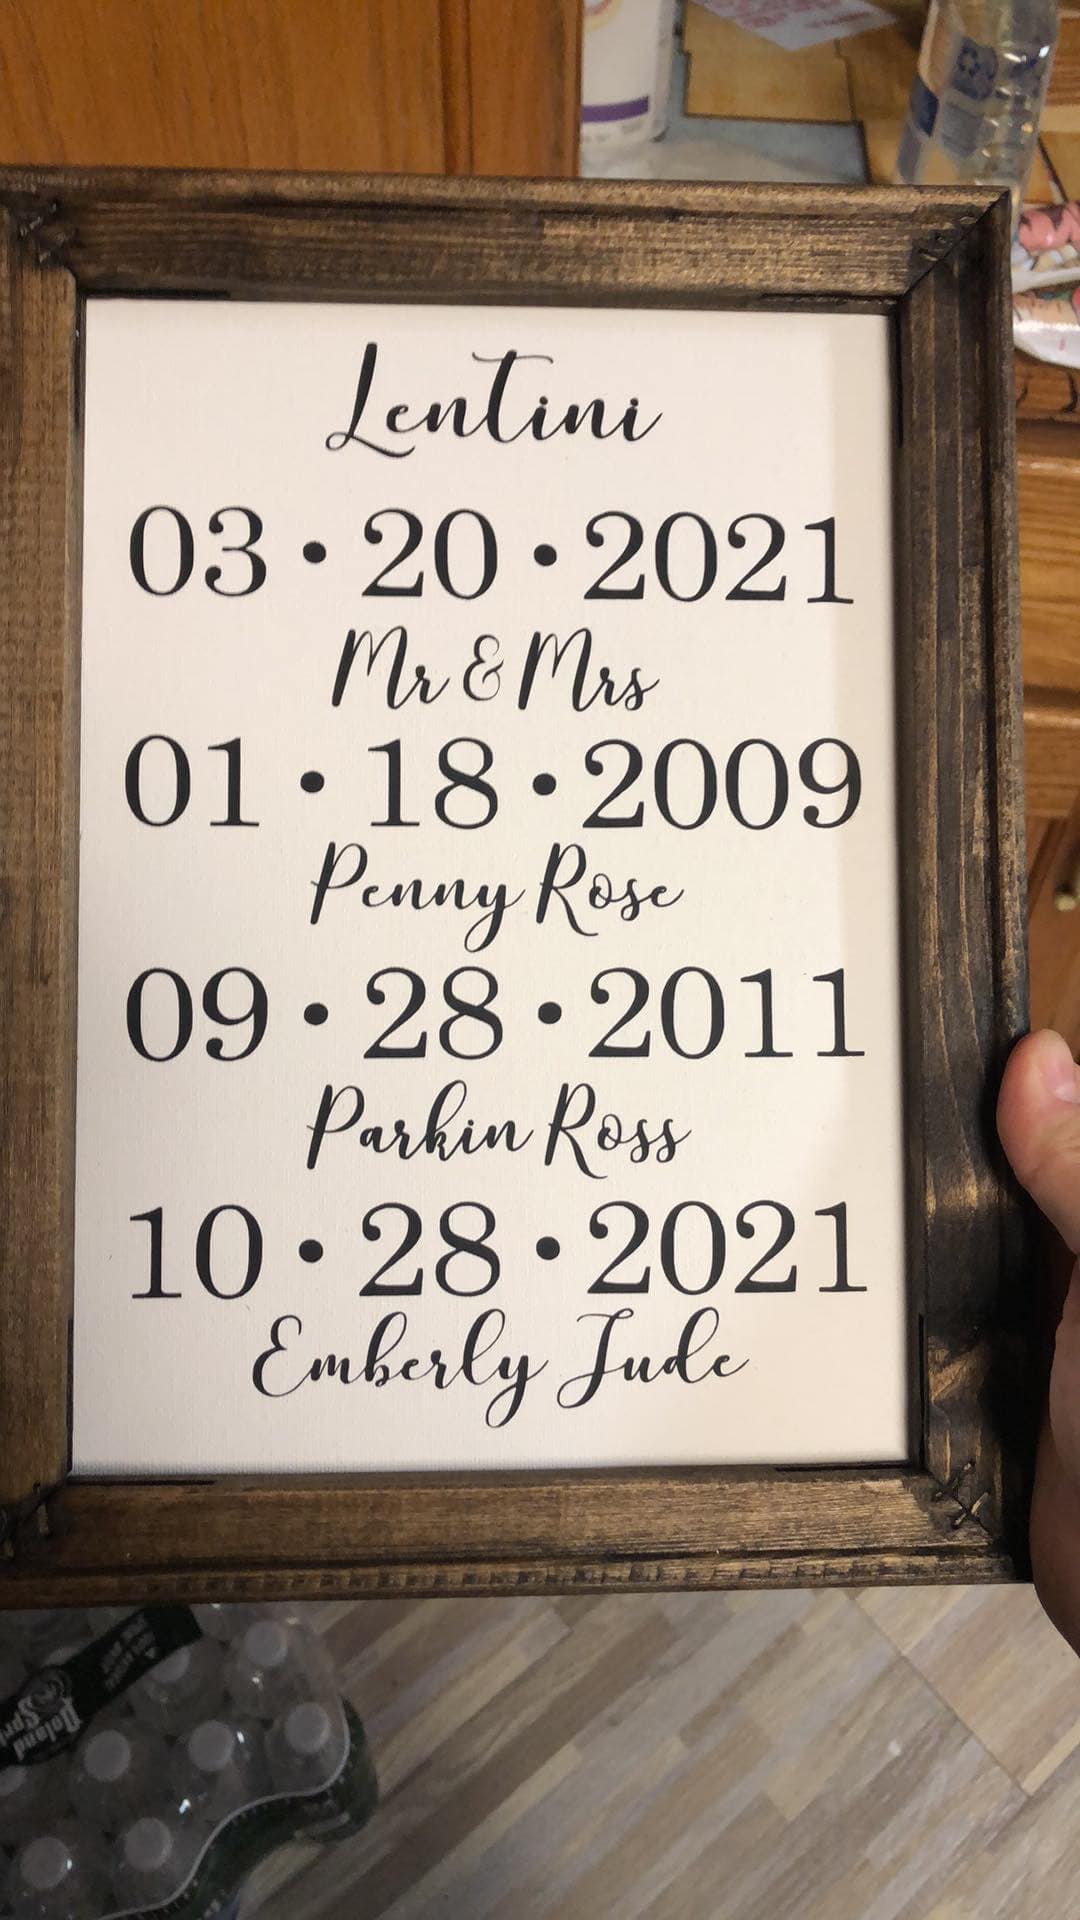 Lentini
03 • 20 • 2021
Mr & Mrs
01 • 18 • 2009
Penny Rose
09 • 28 • 2011
Parkin Ross
10 • 28 • 2021
Emberly Jude
Poland